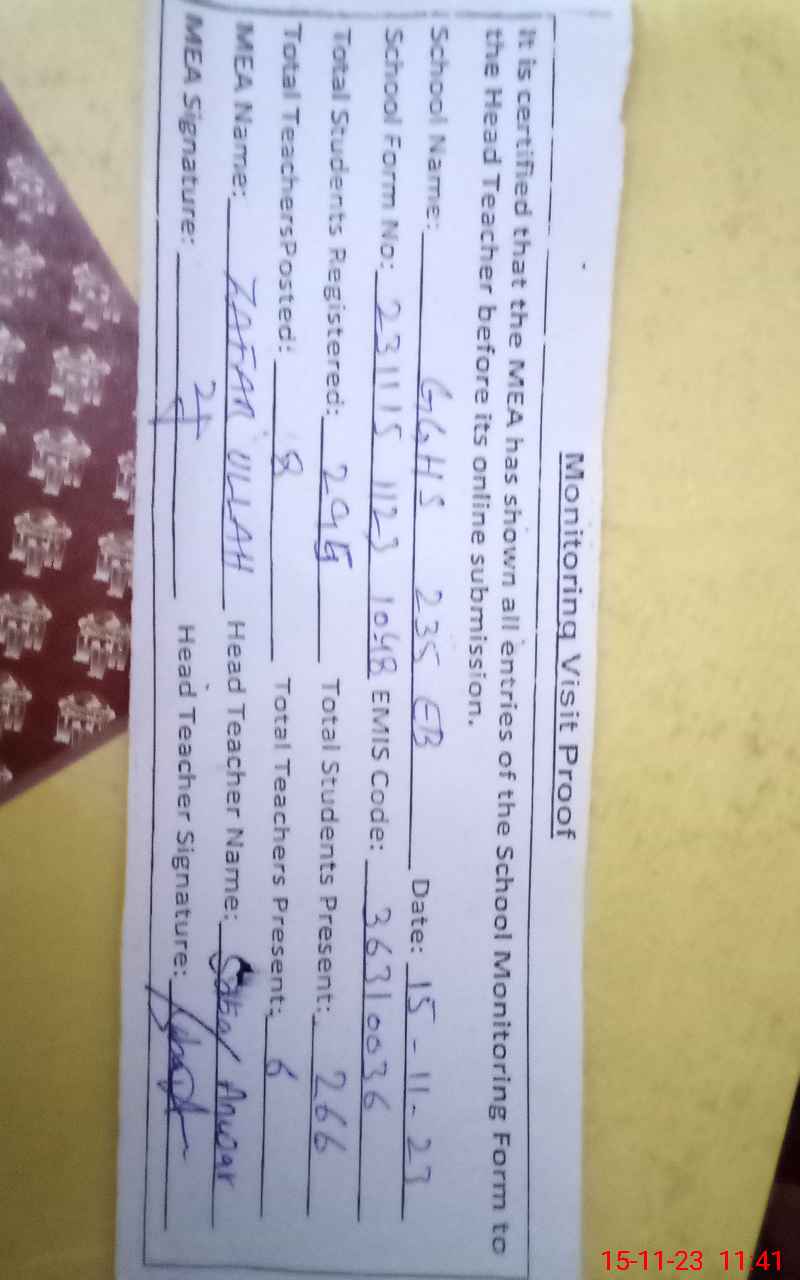 Monitoring Visit Proof
It is certified that the MEA has shown all entries of the School Monitoring Form to
the Head Teacher before its online submission.
School Name: GGHS 235 EB Date: 15-11-23
School Form No: 231115 1123 1048 EMIS Code: 36310036
Total Students Registered: 295 Total Students Present: 266
Total TeachersPosted: 8 Total Teachers Present: 6
MEA Name: ZAFAR ULLAH Head Teacher Name: Anwar
MEA Signature: Head Teacher Signature:
15-11-23 11:41